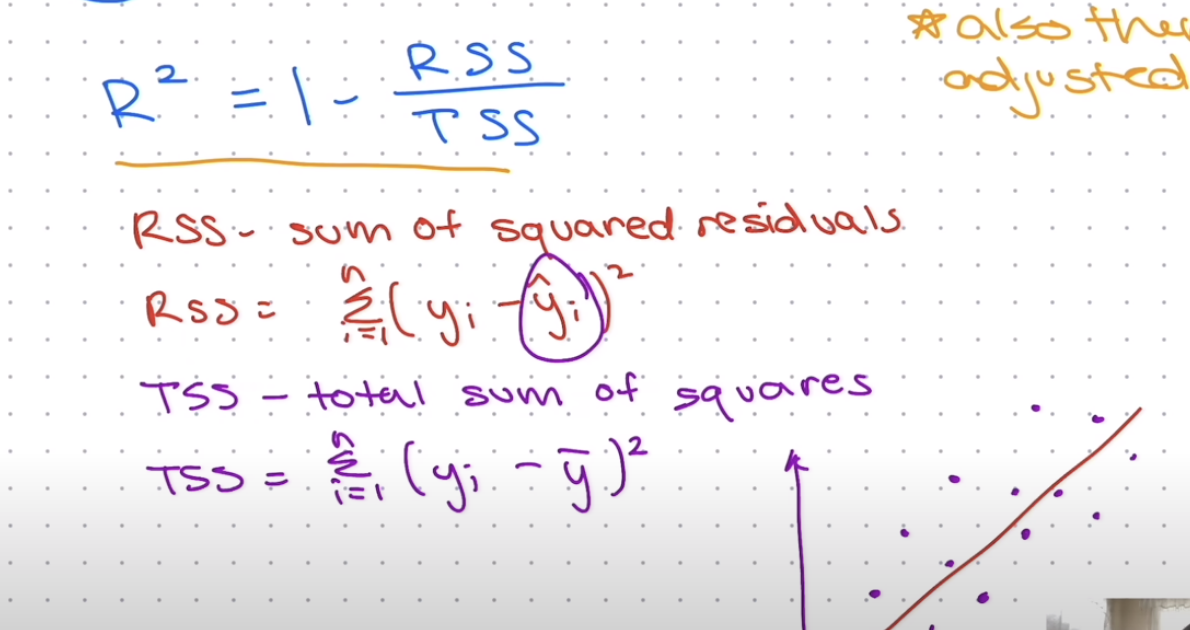 R² = 1 - RSS/TSS
☆ also the
adjusted
RSS - sum of squared residuals
RSS = n Σ i=1 (yi - ŷi)²
TSS - total sum of squares
TSS = n Σ i=1 (yi - ȳ)²